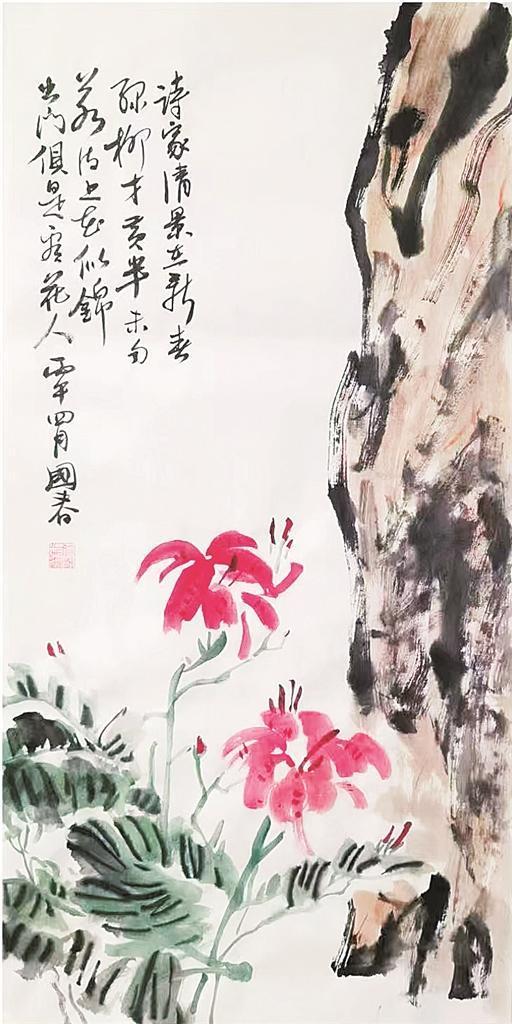 詩家清景在新春
绿柳才黄半未匀
若待上花似錦
出门俱是看花人 四月國春